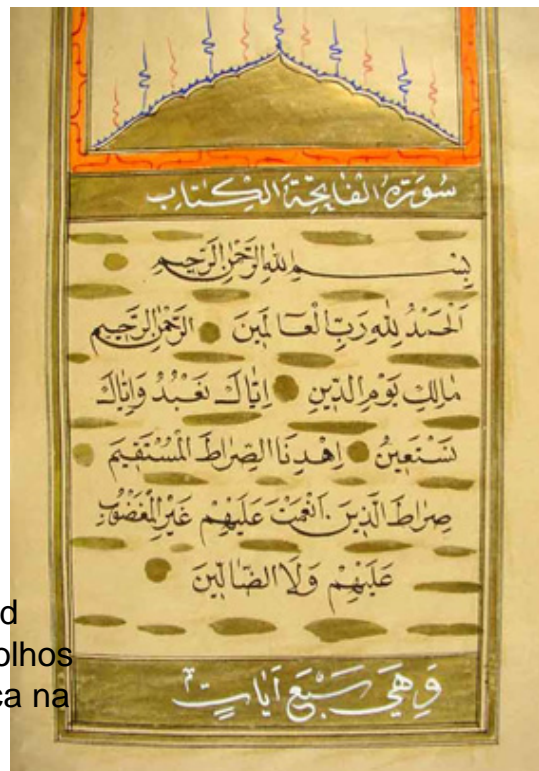 سُورَةُ الْفَاتِحَةِ الْكِتَابِ
بِسْمِ اللهِ الرَّحْمٰنِ الرَّحِيمِ
اَلْحَمْدُ لِلهِ رَبِّ الْعَالَمِينَ الرَّحْمٰنِ الرَّحِيمِ
مَالِكِ يَوْمِ الدِّينِ اِيَّاكَ نَعْبُدُ وَاِيَّاكَ
نَسْتَعِينُ اِهْدِنَا الصِّرَاطَ الْمُسْتَقِيمَ
صِرَاطَ الَّذِينَ اَنْعَمْتَ عَلَيْهِمْ غَيْرِ الْمَغْضُوبِ
عَلَيْهِمْ وَلَا الضَّالِّينَ
وَهِيَ سَبْعُ اٰيَاتٍ
d
olhos
ca na